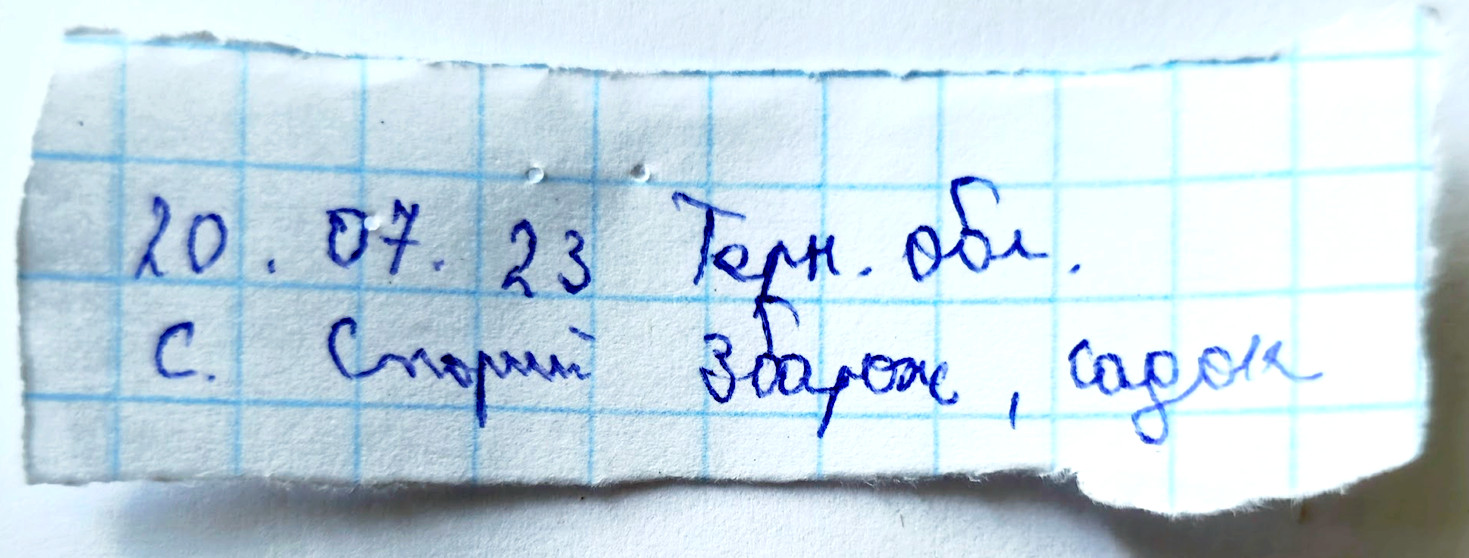 20.07.23 Терн. обл.
с. Старий Збараж, садок